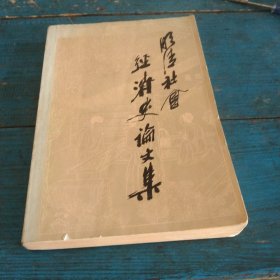 明清社會
經濟史論文集